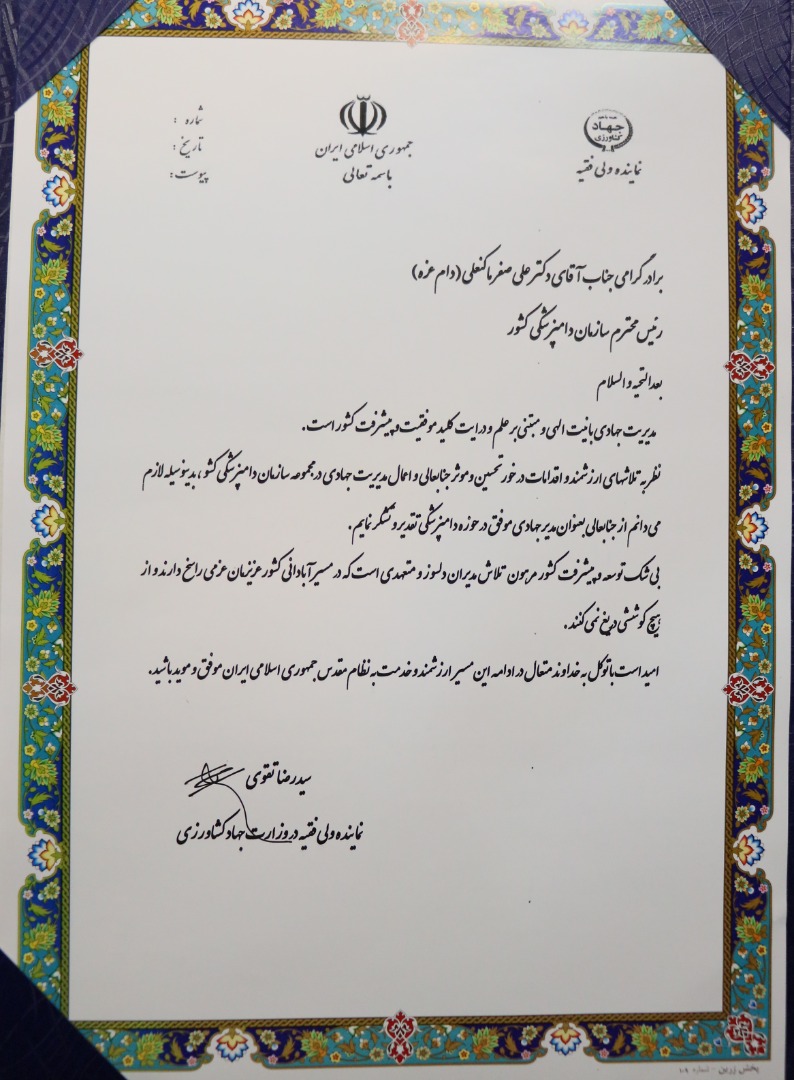 جهاد
کشاورزی
نماینده ولی فقیه
جمهوری اسلامی ایران
باسمه تعالی
شماره :
تاریخ :
پیوست:
برادر گرامی جناب آقای دکتر علی صفر ماکنعلی (دام عزه)
رئیس محترم سازمان دامپزشکی کشور
بعد التحیه و السلام
مدیریت جهادی با نیت الهی و مبتنی بر علم و درایت کلید موفقیت و پیشرفت کشور است.
نظر به تلاشهای ارزشمند و اقدامات در خور تحسین و موثر جنابعالی و اعمال مدیریت جهادی در مجموعه سازمان دامپزشکی کشور، بدینوسیله لازم
می دانم از جنابعالی بعنوان مدیر جهادی موفق در حوزه دامپزشکی تقدیر و تشکر نمایم.
بی شک توسعه و پیشرفت کشور مرهون تلاش مدیران دلسوز و متعهدی است که در مسیر آبادانی کشور عزیزمان عزمی راسخ دارند و از
هیچ کوششی دریغ نمی کنند.
امید است با توکل به خداوند متعال در ادامه این مسیر ارزشمند و خدمت به نظام مقدس جمهوری اسلامی ایران موفق و موید باشید.
سید رضا تقوی
نماینده ولی فقیه در وزارت جهاد کشاورزی
پخش زرین - شماره ۱۰۹